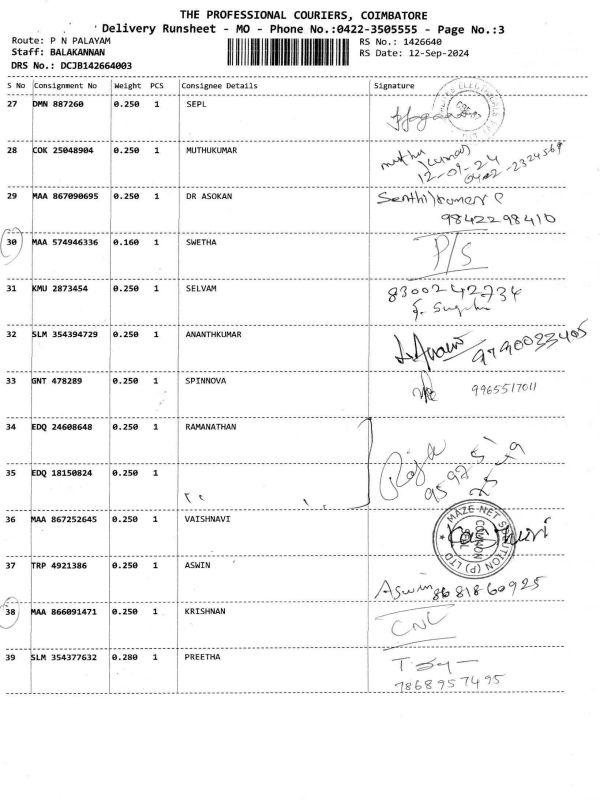 THE PROFESSIONAL COURIERS, COIMBATORE
Delivery Runsheet - MO - Phone No.:0422-3505555 - Page No.:3
Route: P N PALAYAM
RS No.: 1426640
Staff: BALAKANNAN
RS Date: 12-Sep-2024
DRS No.: DCJB142664003
S No Consignment No Weight PCS Consignee Details Signature
27 DMN 887260 0.250 1 SEPL
28 COK 25048904 0.250 1 MUTHUKUMAR muthu kumar
12-09-24
0422-2324569
29 MAA 867090695 0.250 1 DR ASOKAN Senthilkumar P
9842298410
30 MAA 574946336 0.160 1 SWETHA P/S
31 KMU 2873454 0.250 1 SELVAM 8300242734
32 SLM 354394729 0.250 1 ANANTHKUMAR 9790033405
33 GNT 478289 0.250 1 SPINNOVA 9965517011
34 EDQ 24608648 0.250 1 RAMANATHAN Raja
35 EDQ 18150824 0.250 1 " "
36 MAA 867252645 0.250 1 VAISHNAVI MAZE NET SOLUTION (P) LTD
37 TRP 4921386 0.250 1 ASWIN Aswin 8681860925
38 MAA 866091471 0.250 1 KRISHNAN CNC
39 SLM 354377632 0.280 1 PREETHA
7868957495